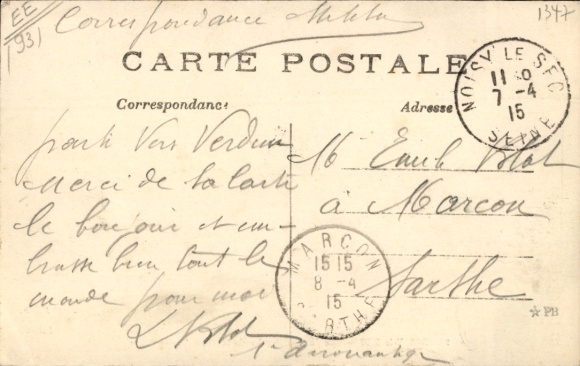 EE
(93)
1347
Correspondance
CARTE POSTALE
Correspondance
Adresse
NOISY LE SEC
11 40
7 -4
15
SEINE
parti vers Verdun
Merci de ta carte
le bonjour et em-
brasse bien tout le
monde pour moi
M Emile
à Marcon
Sarthe
MARCON
15 15
8 -4
15
SARTHE
☆ PB